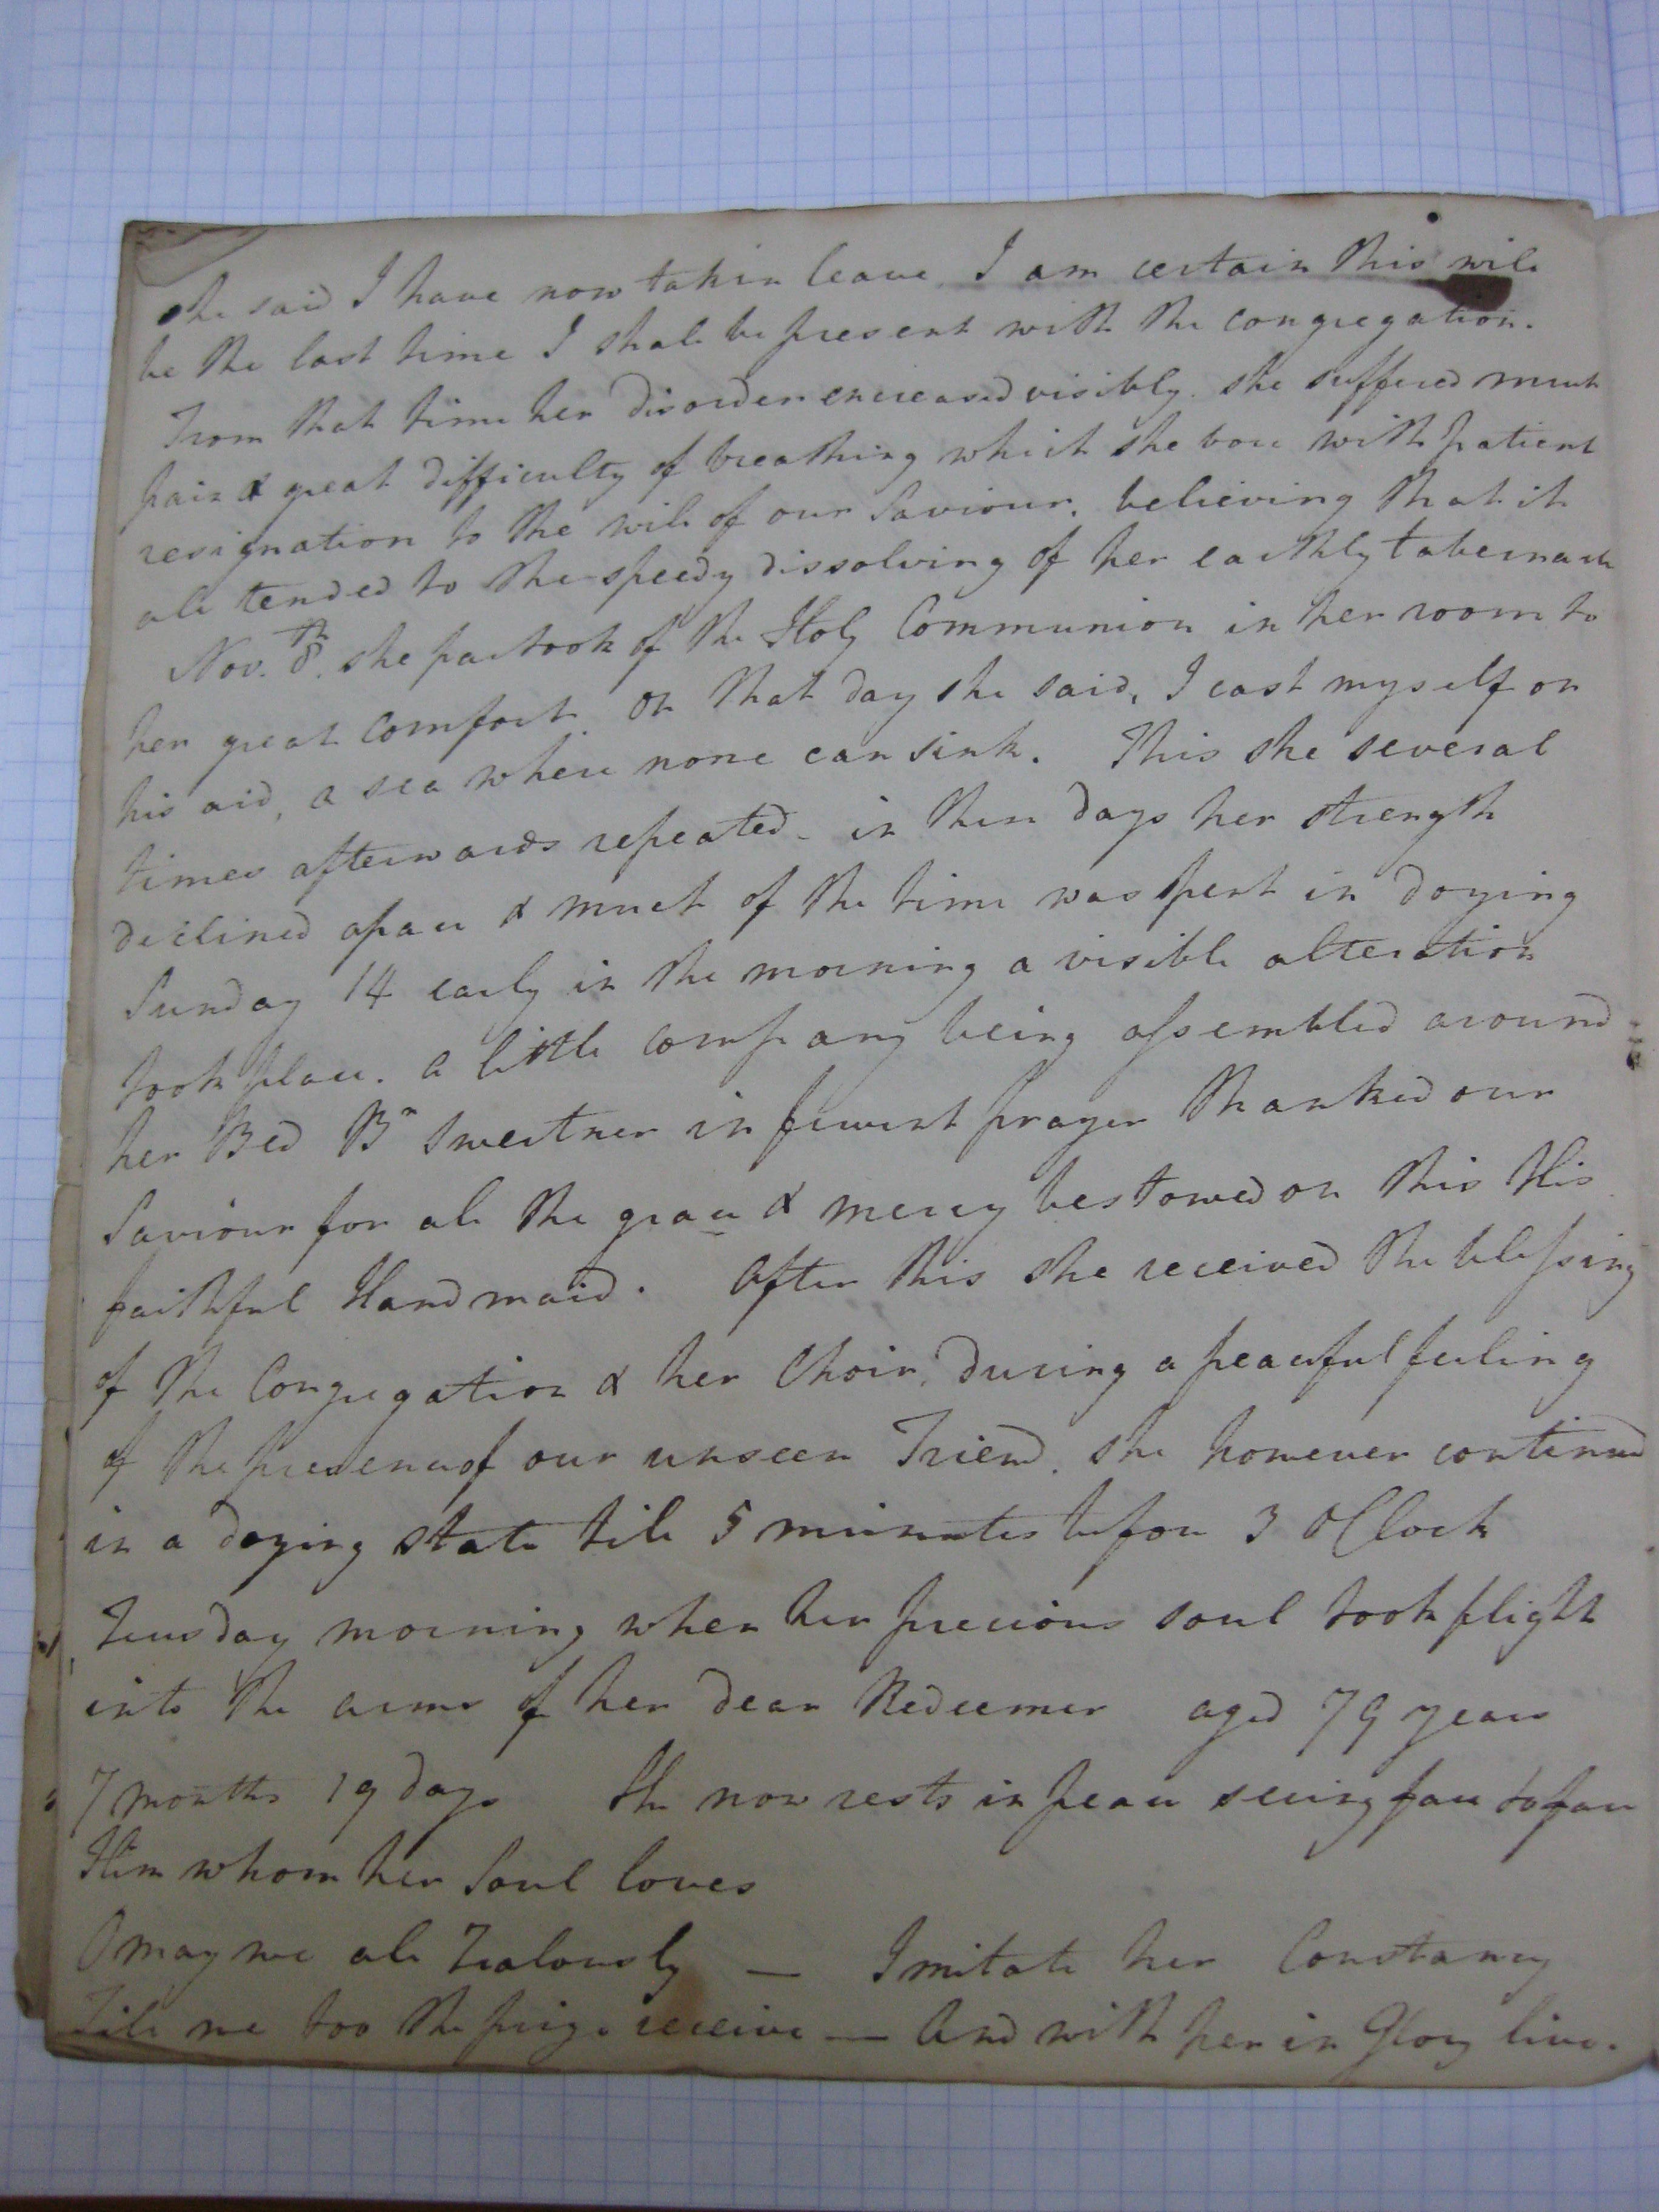 she said I have now taken leave. I am certain this will
be the last time I shall be present with the congregation.
From that time her disorder encreased visibly. she suffered much
pain & great difficulty of breathing which she bore with patient
resignation to the will of our Saviour, believing that it
all tended to the speedy dissolving of her earthly tabernacle
Nov. 8th. she partook of the Holy Communion in her room to
her great comfort on that day she said, I cast myself on
his aid, a sea where none can sink. This she several
times afterwards repeated. in these days her strength
declined apace & much of the time was spent in dozing
Sunday 14 early in the morning a visible alteration
took place. a little company being assembled around
her Bed Br Sweitner in fervent prayer thanked our
Saviour for all the grace & mercy bestowed on this His
faithful Handmaid. After this she received the blessing
of the Congregation & her Choir, during a peaceful feeling
of the presence of our unseen Friend. she however continued
in a dozing state till 5 minutes before 3 oClock
Tuesday morning when her precious soul took flight
into the arms of her dear Redeemer aged 79 years
7 months 19 days She now rests in peace seeing face to face
Him whom her Soul loves
O may we all Zealously — Imitate her Constancy
Till we too the prize receive — And with her in Glory live.